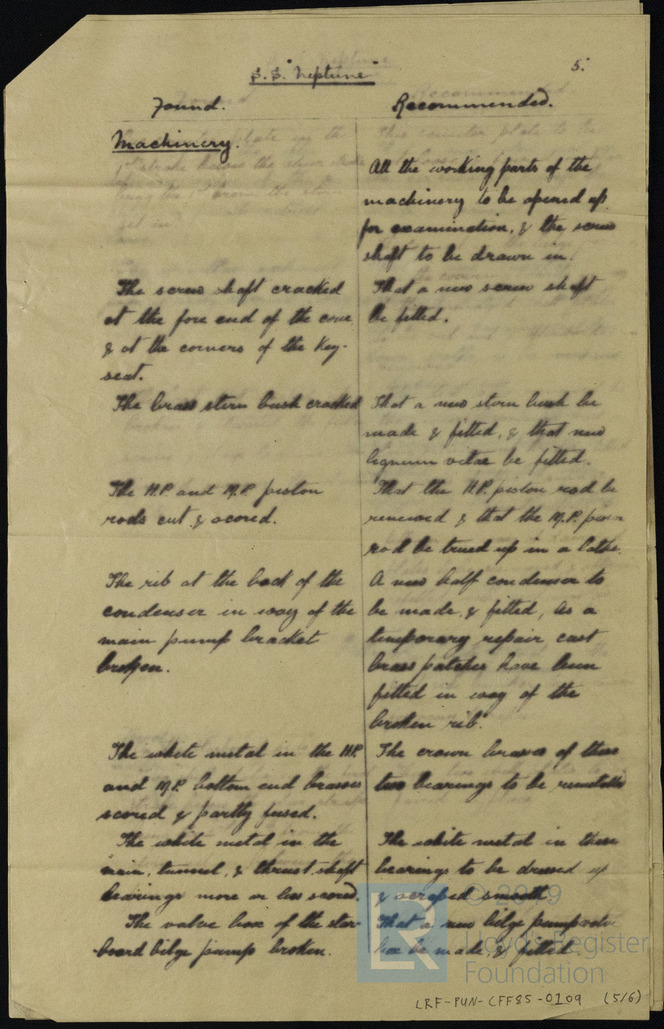 S.S. "Neptune"
5.
Found.
Recommended.
Machinery.
All the working parts of the
machinery to be opened up
for examination, & the screw
shaft to be drawn in.
The screw shaft cracked
at the fore end of the cone
& at the corners of the key-
seat.
That a new screw shaft
be fitted.
The brass stern bush cracked
That a new stern bush be
made & fitted, & that new
lignum vitae be fitted.
The H.P. and M.P. piston
rods cut & scored.
That the H.P. piston rod be
renewed & that the M.P. piston
rod be trued up in a lathe.
The rib at the back of the
condenser in way of the
main pump bracket
broken.
A new half condenser to
be made & fitted, as a
temporary repair cast
brass patches have been
fitted in way of the
broken rib.
The white metal in the H.P.
and M.P. bottom end brasses
scored & partly fused.
The crown brasses of these
two bearings to be remetalled
The white metal in the
main, tunnel, & thrust shaft
bearings more or less scored.
The white metal in these
bearings to be dressed up
& scraped smooth.
The valve box of the star-
board bilge pump broken.
That a new bilge pump valve
box be made & fitted.
© 2019
Lloyd's Register
Foundation
LRF-PUN-CFF85-0109 (5/6)